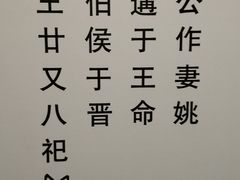 公作妻姚
遘于王命
伯侯于晋
王廿又八祀